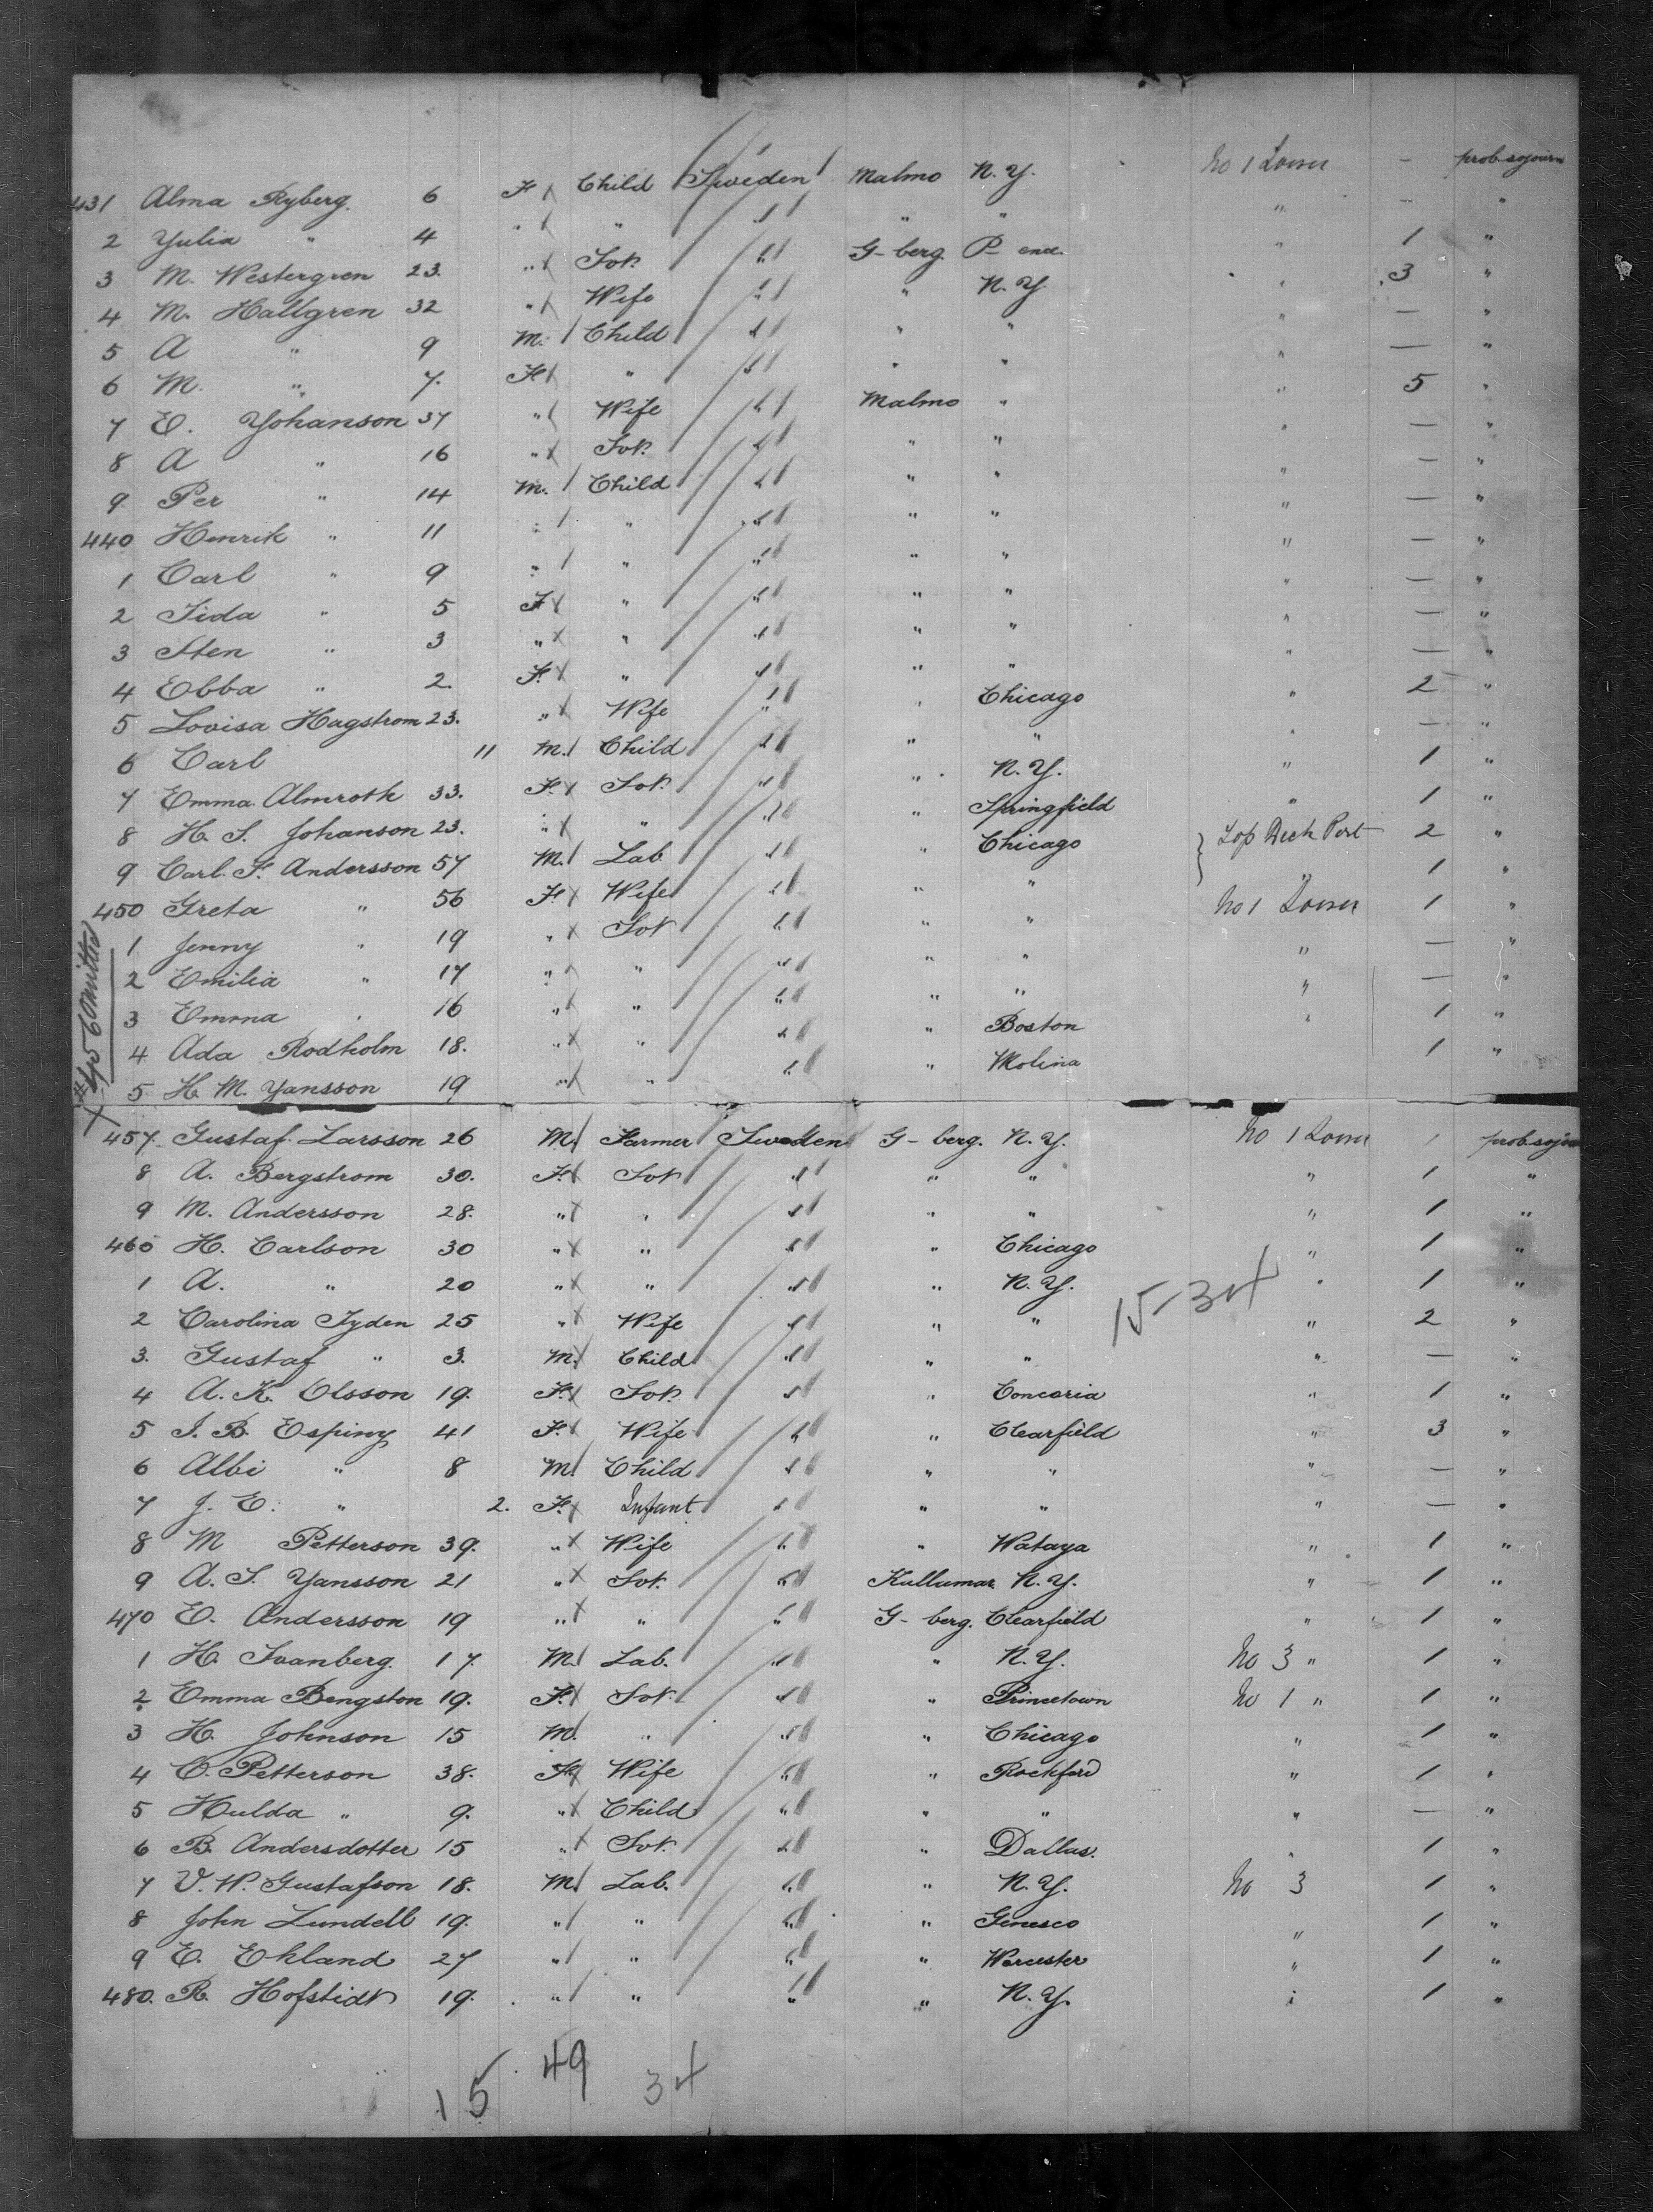 431 Alma Ryberg. 6 F Child Sweden Malmo N.Y. No 1 Lower — prob sojourn
2 Yulia " 4 " " " " " " — "
3 M. Westergren 23. " " G-berg. " 1 "
4 M. Hallgren 32 " Wife " " N.Y " 3 "
5 A " 9 M. Child " " " " — "
6 M. " 7. F " " " " " — "
7 E. Yohanson 37 " Wife " Malmo " " 5 "
8 A " 16 " " " " " — "
9 Per " 14 M. Child " " " " — "
440 Henrik " 11 " " " " " " — "
1 Carl " 9 " " " " " " — "
2 Iida " 5 F " " " " " — "
3 Sten " 3 " " " " " " — "
4 Ebba " 2. F. " " " " " — "
5 Lovisa Hagstrom 23. " Wife " " Chicago " 2 "
6 Carl 11 M. Child " " " " — "
7 Emma Almroth 33. F. " " N.Y. " 1 "
8 H. S. Johanson 23. " " " " Springfield " 1 "
9 Carl. F. Andersson 57 M. Lab " " Chicago } Top Deck Port 2 "
450 Greta " 56 F Wife " " " " 1 "
1 Jenny " 19 " " " " No 1 Lower 1 "
2 Emilia " 17 " " " " " " — "
3 Emma " 16 " " " " " " — "
4 Ada Rodholm 18. " " " " Boston " 1 "
5 H. M. Yansson 19 " " " " Molina 1 "
X #456 Omitted
457. Gustaf. Larsson 26 M. Farmer Sweden G-berg. N.Y. No 1 Lower 1 prob sojou
8 A. Bergstrom 30. F. " " " " 1 "
9 M. Andersson 28. " " " " " " 1 "
460 H. Carlson 30 " " " " Chicago " 1 "
1 A. " 20 " " " " N.Y. " 1 "
15-34
2 Carolina Tyden 25 " Wife " " " " 2 "
3. Gustaf " 3. M. Child " " " " — "
4 A. K. Olsson 19. F. " " Concoria " 1 "
5 I. B. Espiny 41 F. Wife " " Clearfield " 3 "
6 Albi " 8 M. Child " " " " — "
7 J. E. " 2. F. Infant " " " " — "
8 M Petterson 39. " Wife " " Wataga " 1 "
9 A. S. Yansson 21 " " Kullumar N.Y. " 1 "
470 E. Andersson 19 " " " G-berg. Clearfield " 1 "
1 H. Svanberg. 17. M. Lab. " " N.Y. No 3 " 1 "
2 Emma Bengston 19. F. " " Princetown No 1 " 1 "
3 H. Johnson 15 M. " " " Chicago " 1 "
4 C. Petterson 38. F. Wife " " Rockford " 1 "
5 Hulda " 9. " Child " " " " — "
6 B. Andersdotter 15 " " " Dallas. " 1 "
7 V. W. Gustafson 18. M. Lab. " " N.Y. No 3 1 "
8 John Lundell 19. " " " " Genesco " 1 "
9 E. Ekland 27 " " " " Worcester " 1 "
480. R. Hofstidt 19. " " " " N.Y. " 1 "
15 49 34